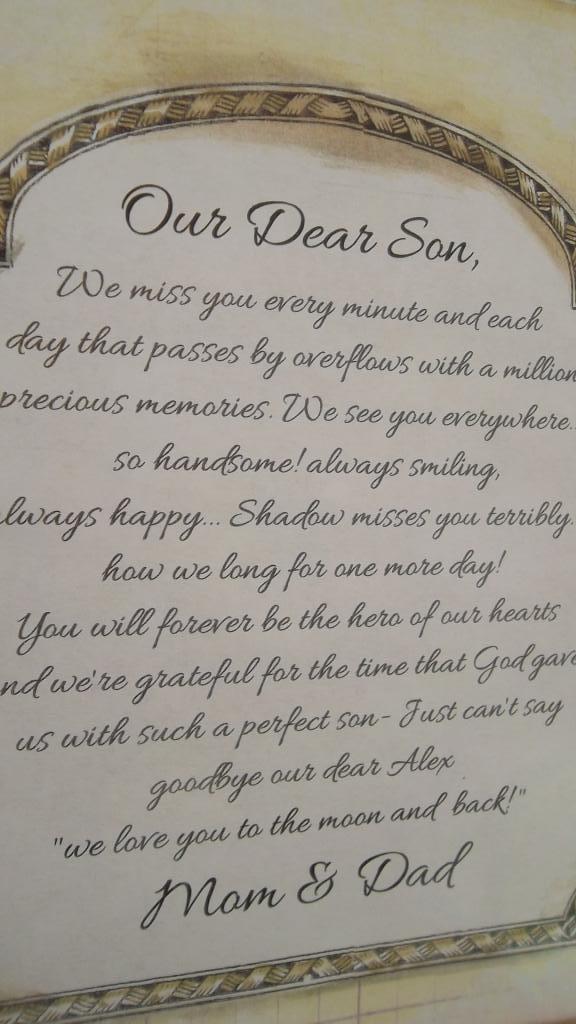 Our Dear Son,
We miss you every minute and each
day that passes by overflows with a million
precious memories. We see you everywhere..
so handsome! always smiling,
always happy... Shadow misses you terribly.
how we long for one more day!
You will forever be the hero of our hearts
and we're grateful for the time that God gave
us with such a perfect son- Just can't say
goodbye our dear Alex
"we love you to the moon and back!"
Mom & Dad